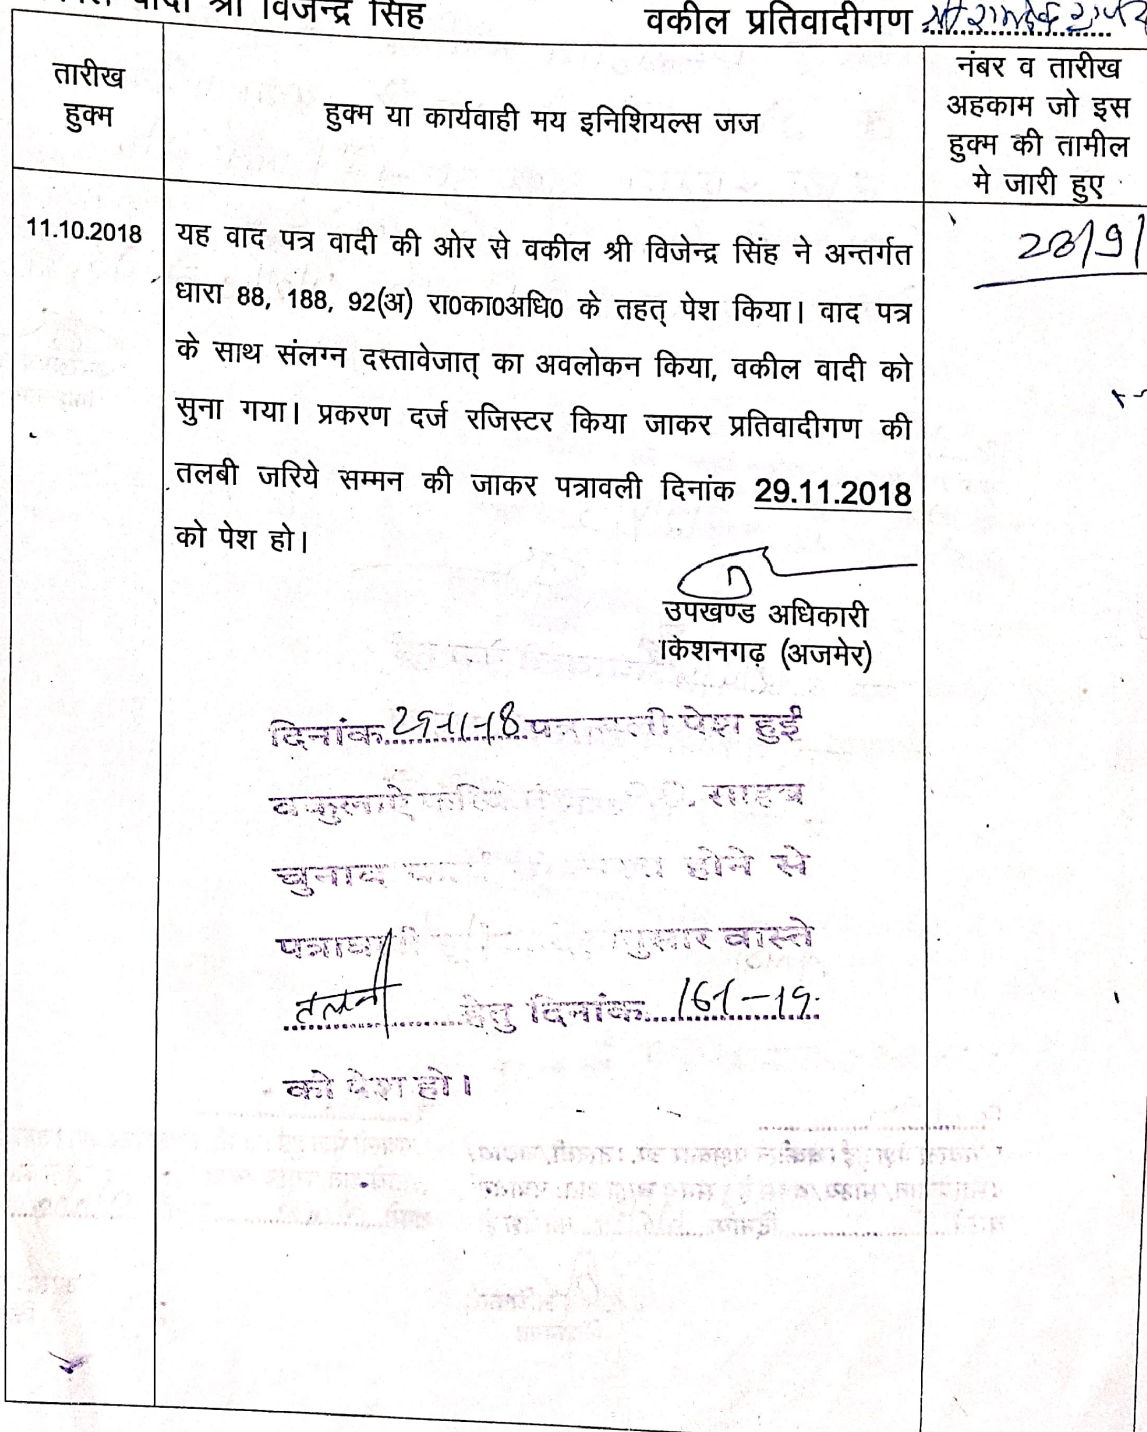 वादी श्री विजेन्द्र सिंह वकील प्रतिवादीगण
तारीख
हुक्म
हुक्म या कार्यवाही मय इनिशियल्स जज
नंबर व तारीख
अहकाम जो इस
हुक्म की तामील
मे जारी हुए
11.10.2018
यह वाद पत्र वादी की ओर से वकील श्री विजेन्द्र सिंह ने अन्तर्गत
धारा 88, 188, 92(अ) रा0का0अधि0 के तहत् पेश किया। वाद पत्र
के साथ संलग्न दस्तावेजात् का अवलोकन किया, वकील वादी को
सुना गया। प्रकरण दर्ज रजिस्टर किया जाकर प्रतिवादीगण की
तलबी जरिये सम्मन की जाकर पत्रावली दिनांक 29.11.2018
को पेश हो।
उपखण्ड अधिकारी
किशनगढ़ (अजमेर)
दिनांक 29-11-18 पत्रावली पेश हुई
साहब
चुनाव होने से
वास्ते
तलबी हेतु दिनांक 16-1-19.
को पेश हो।